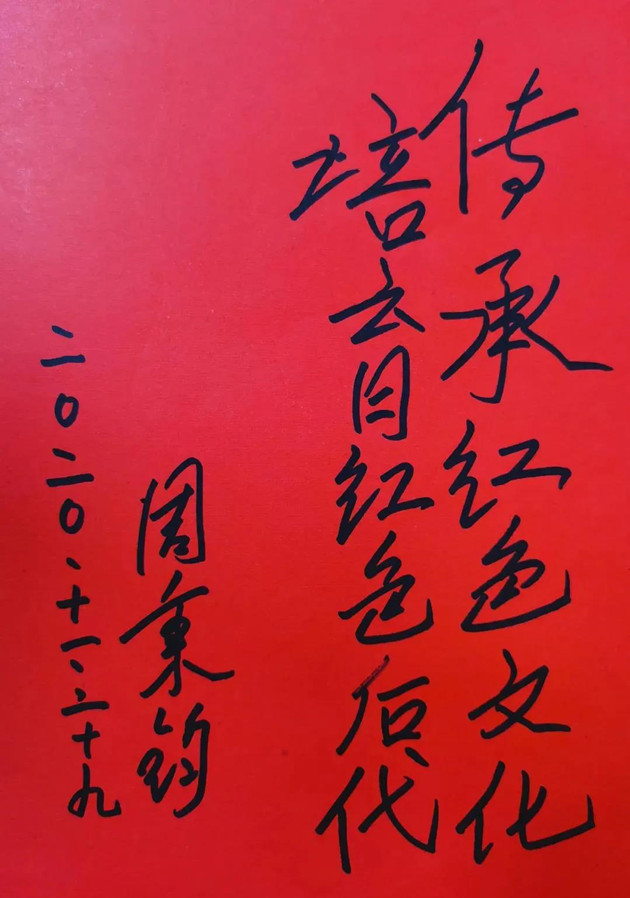 传承红色文化
培育红色后代
周秉钧
二〇二〇、十一、二十九